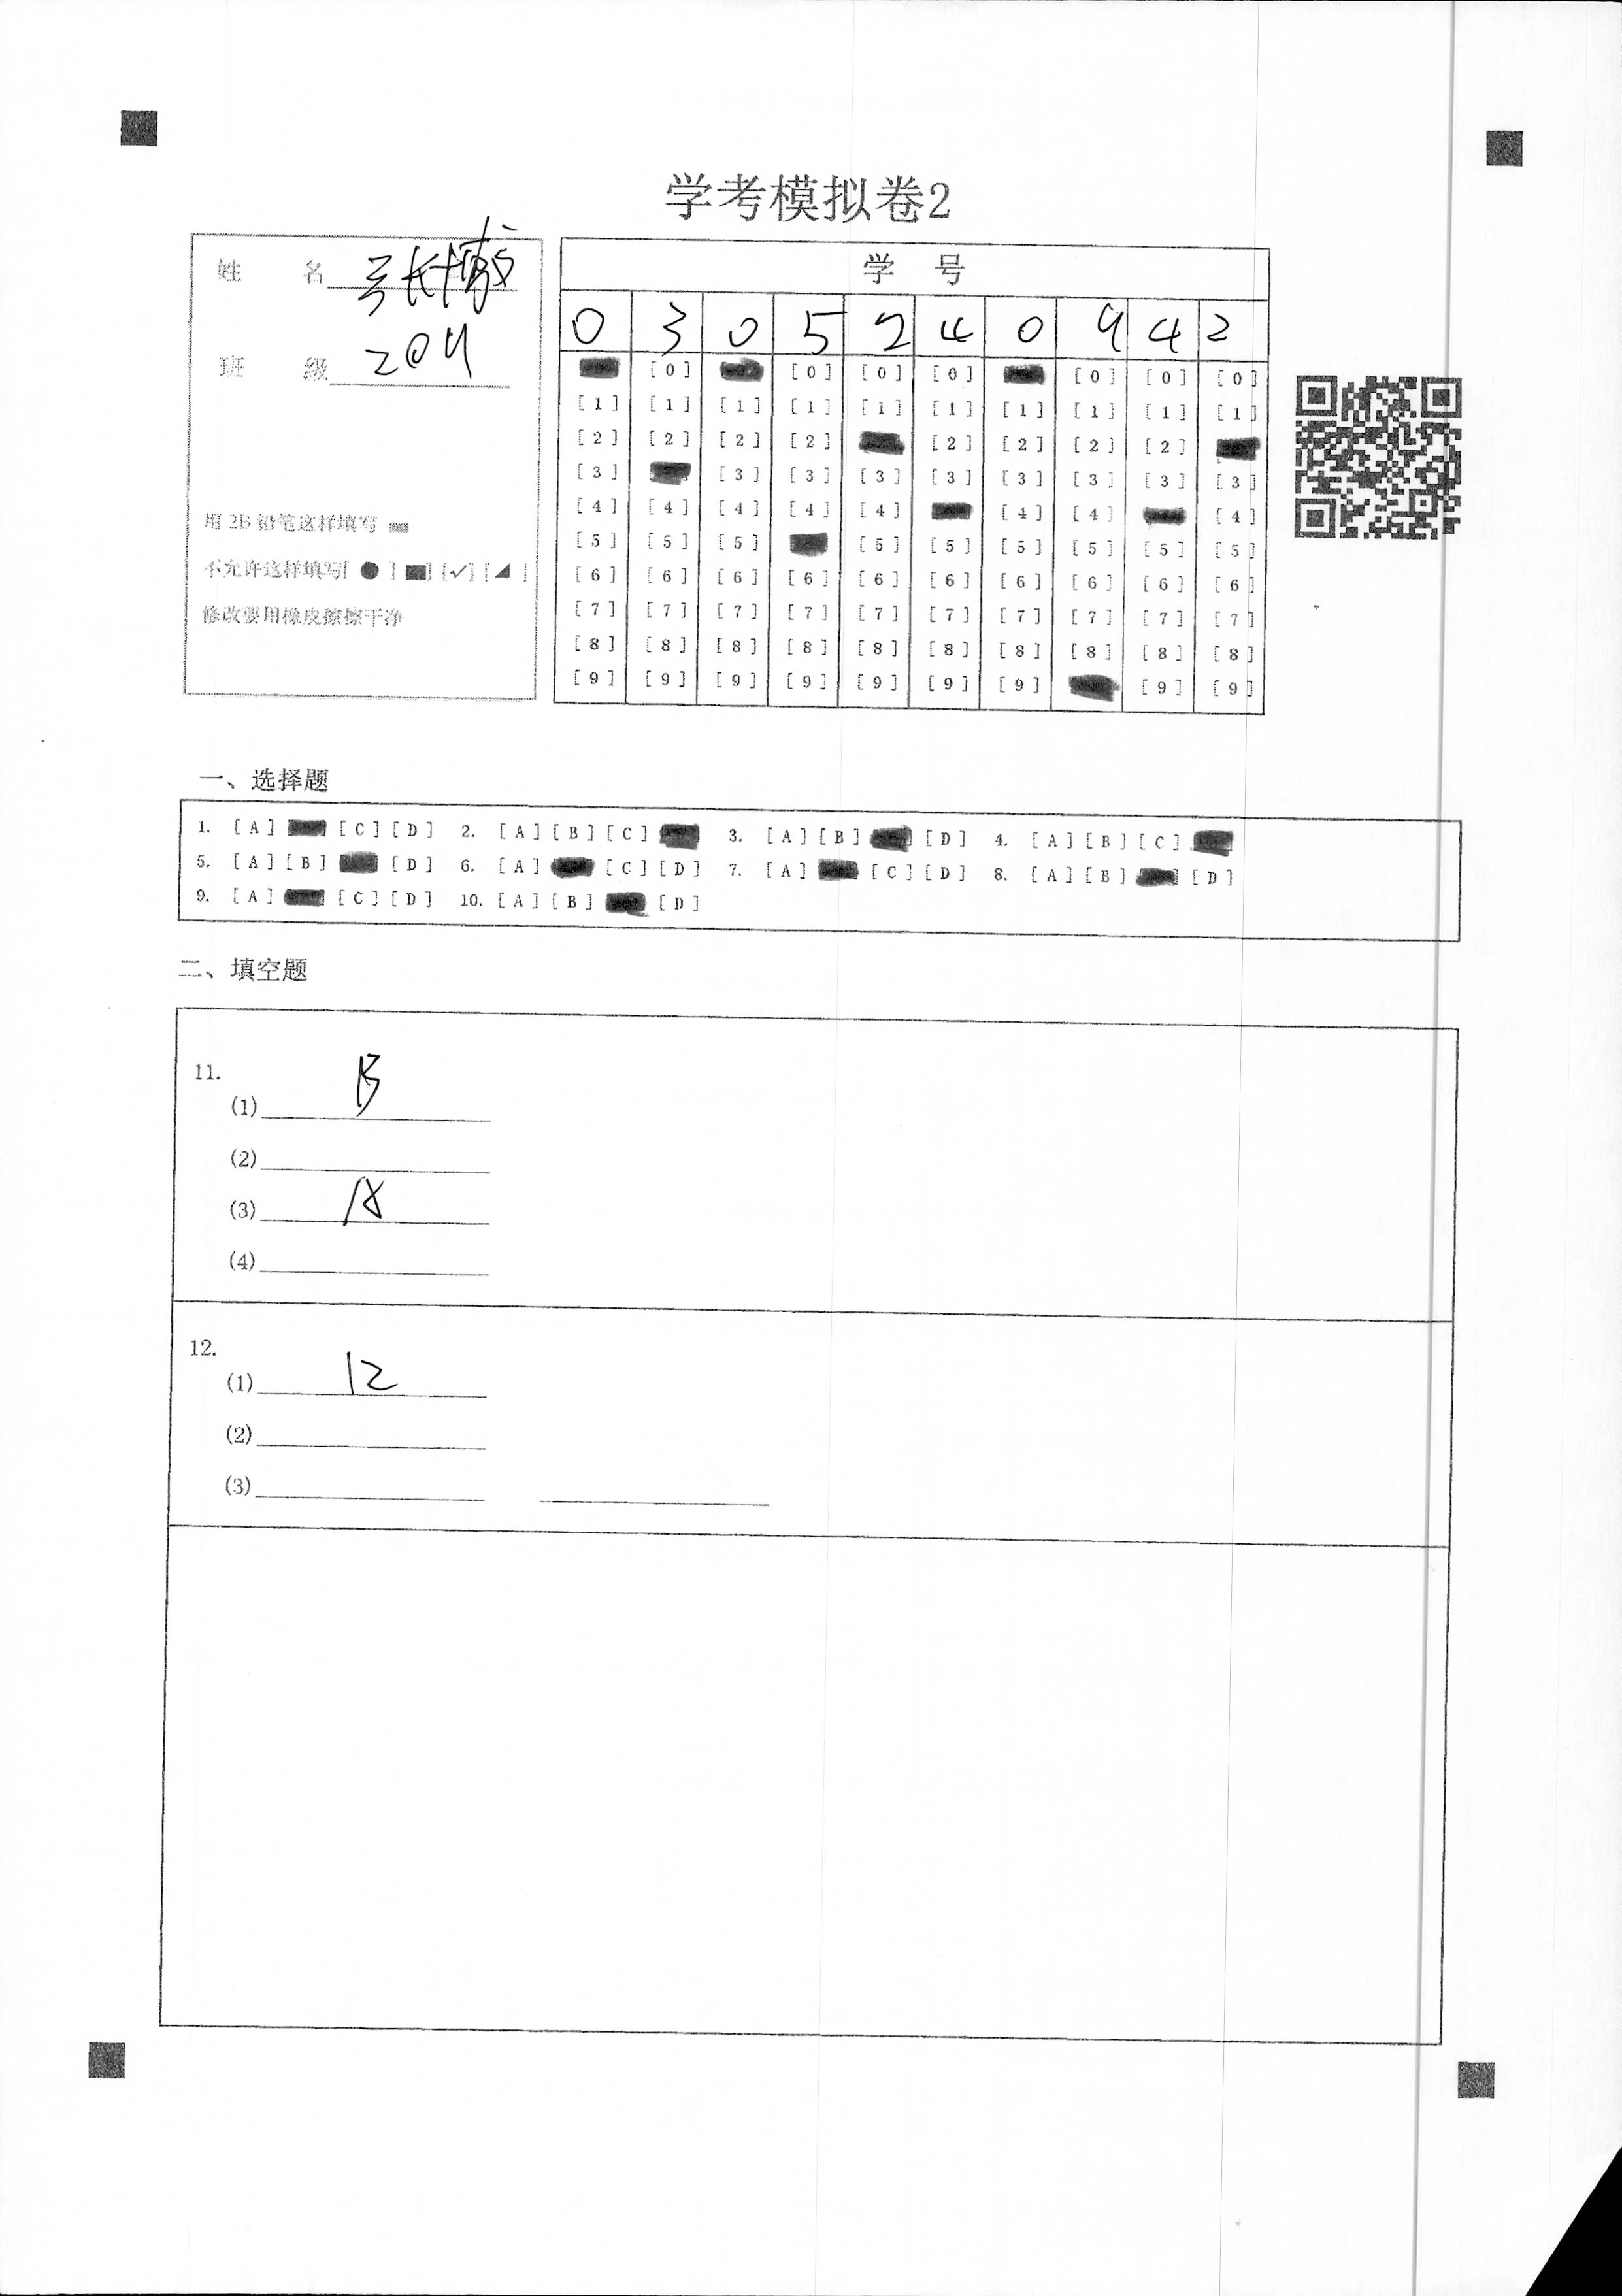 学考模拟卷2
姓 名 张博
班 级 204
用 2B 铅笔这样填写
不允许这样填写[ ● ] [■] [✓] [◢ ]
修改要用橡皮擦擦干净
学 号
0 3 0 5 2 4 0 9 4 2
[0] [0] [0] [0] [0] [0] [0]
[1] [1] [1] [1] [1] [1] [1] [1] [1] [1]
[2] [2] [2] [2] [2] [2] [2] [2]
[3] [3] [3] [3] [3] [3] [3] [3] [3]
[4] [4] [4] [4] [4] [4] [4] [4]
[5] [5] [5] [5] [5] [5] [5] [5] [5]
[6] [6] [6] [6] [6] [6] [6] [6] [6] [6]
[7] [7] [7] [7] [7] [7] [7] [7] [7] [7]
[8] [8] [8] [8] [8] [8] [8] [8] [8] [8]
[9] [9] [9] [9] [9] [9] [9] [9] [9]
一、选择题
1. [A] [C] [D] 2. [A] [B] [C] 3. [A] [B] [D] 4. [A] [B] [C]
5. [A] [B] [D] 6. [A] [C] [D] 7. [A] [C] [D] 8. [A] [B] [D]
9. [A] [C] [D] 10. [A] [B] [D]
二、填空题
11.
(1) B
(2)
(3) A
(4)
12.
(1) 12
(2)
(3)